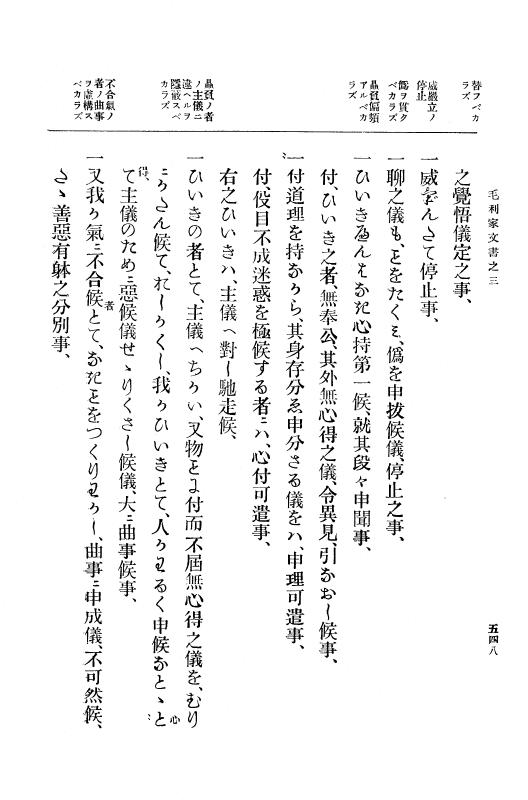 毛利家文書之三
五四八
替フベカ
ラズ
威嚴立ノ
停止
僞ヲ貫ク
ベカラズ
贔負偏頗
アルベカ
ラズ
贔負ノ者
ノ主儀ニ
違ヘルヲ
隱蔽スベ
カラズ
不合氣ノ
者ノ曲事
ヲ虚構ス
ベカラズ
之覺悟儀定之事、
一威けんたて停止事、
一聊之儀も、ことをたくミ、僞を申拔候儀、停止之事、
一ひいきへんはなき心持第一候、就其段々申聞事、
付、ひいき之者、無奉公、其外無心得之儀、令異見、引なおし候事、
一付道理を持なから、其身存分ゑ申分さる儀をハ、申理可遣事、
付、伇目不成迷惑を極候する者ニハ、心付可遣事、
右之ひいきハ、主儀へ對し馳走候、
一ひいきの者とて、主儀へちかい、又物ことニ付而不屆無心得之儀を、むり
ニかさん候て、おしかくし、我かひいきとて、人かわるく申候なとゝと
心
得
て主儀のためニ惡候儀せゝりくさし候儀、大ニ曲事候事、
者
一又我か氣ニ不合候とて、なきことをつくりわかし、曲事ニ申成儀、不可然候、
たゝ善惡有躰之分別事、